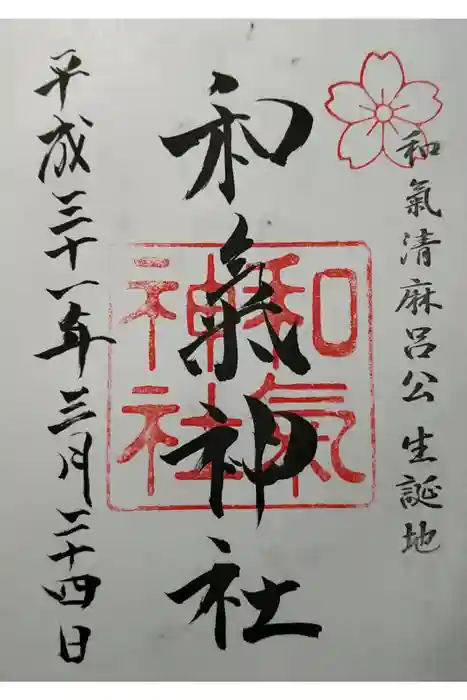 和氣清麻呂公 生誕地
和氣神社
和氣
神社
平成三十一年三月二十四日